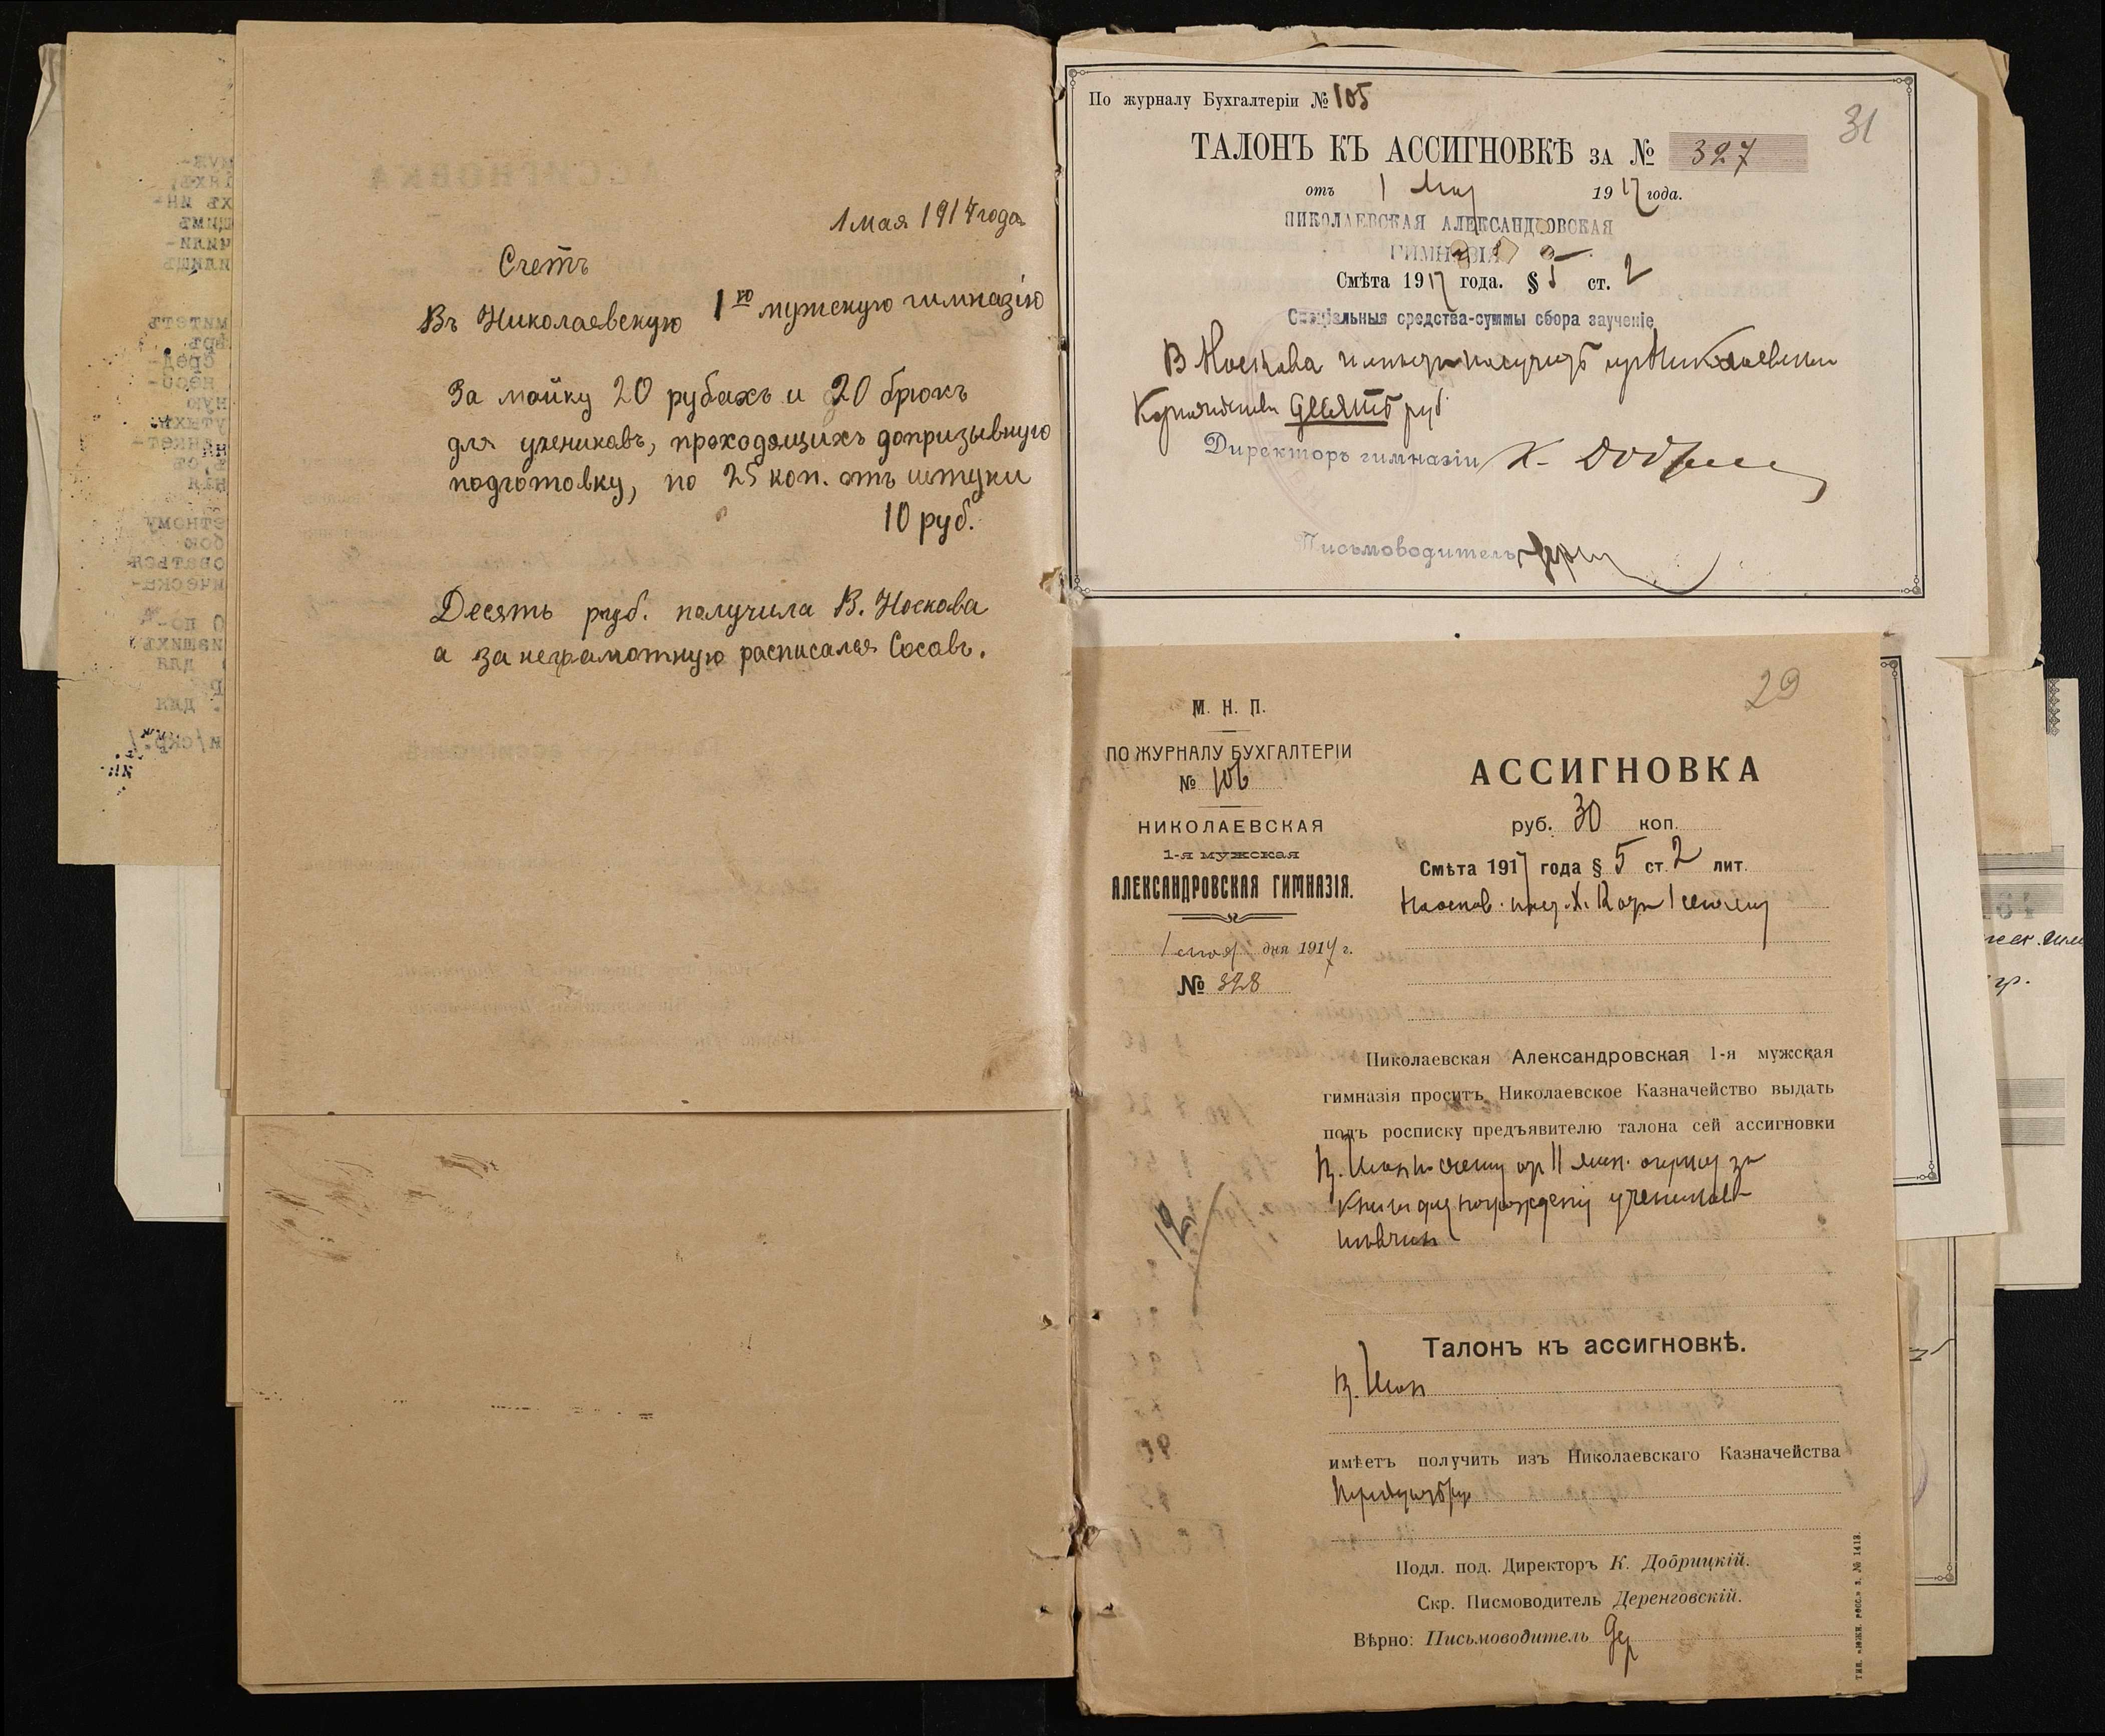 1 мая 1917 года
Счетъ
Въ Николаевскую 1ую мужскую гимназію
За мойку 20 рубахъ и 20 брюкъ
для учениковъ, проходящихъ допризывную
подготовку, по 25 коп. отъ штуки
10 руб.
Десять руб. получила В. Носкова
а за неграмотную расписался Сосовъ.
По журналу Бухгалтеріи № 105
31
ТАЛОНЪ КЪ АССИГНОВКѢ ЗА № 327
отъ 1 мая 1917 года.
НИКОЛАЕВСКАЯ АЛЕКСАНДРОВСКАЯ
ГИМНАЗІЯ
Смѣта 1917 года. § 5 ст. 2
Спеціальныя средства-суммы сбора заученіе
В Носкова имѣетъ получить изъ Николаевскаго
Казначейства десять руб.
Директоръ гимназіи К. Добр
Письмоводитель
29
М. Н. П.
ПО ЖУРНАЛУ БУХГАЛТЕРІИ
№ 106
НИКОЛАЕВСКАЯ
1-я мужская
АЛЕКСАНДРОВСКАЯ ГИМНАЗІЯ.
1 мая дня 1917 г.
№ 328
АССИГНОВКА
руб. 30 коп.
Смѣта 1917 года § 5 ст. 2 лит.
Николаевская Александровская 1-я мужская
гимназія проситъ Николаевское Казначейство выдать
подъ росписку предъявителю талона сей ассигновки
книги для награжденія учениковъ
Талонъ къ ассигновкѣ.
имѣетъ получить изъ Николаевскаго Казначейства
Подл. под. Директоръ К. Добрицкій.
Скр. Писмоводитель Деренговскій.
Вѣрно: Письмоводитель Дер
ТИП. «ЮЖН. РОСС.» З. № 1413.